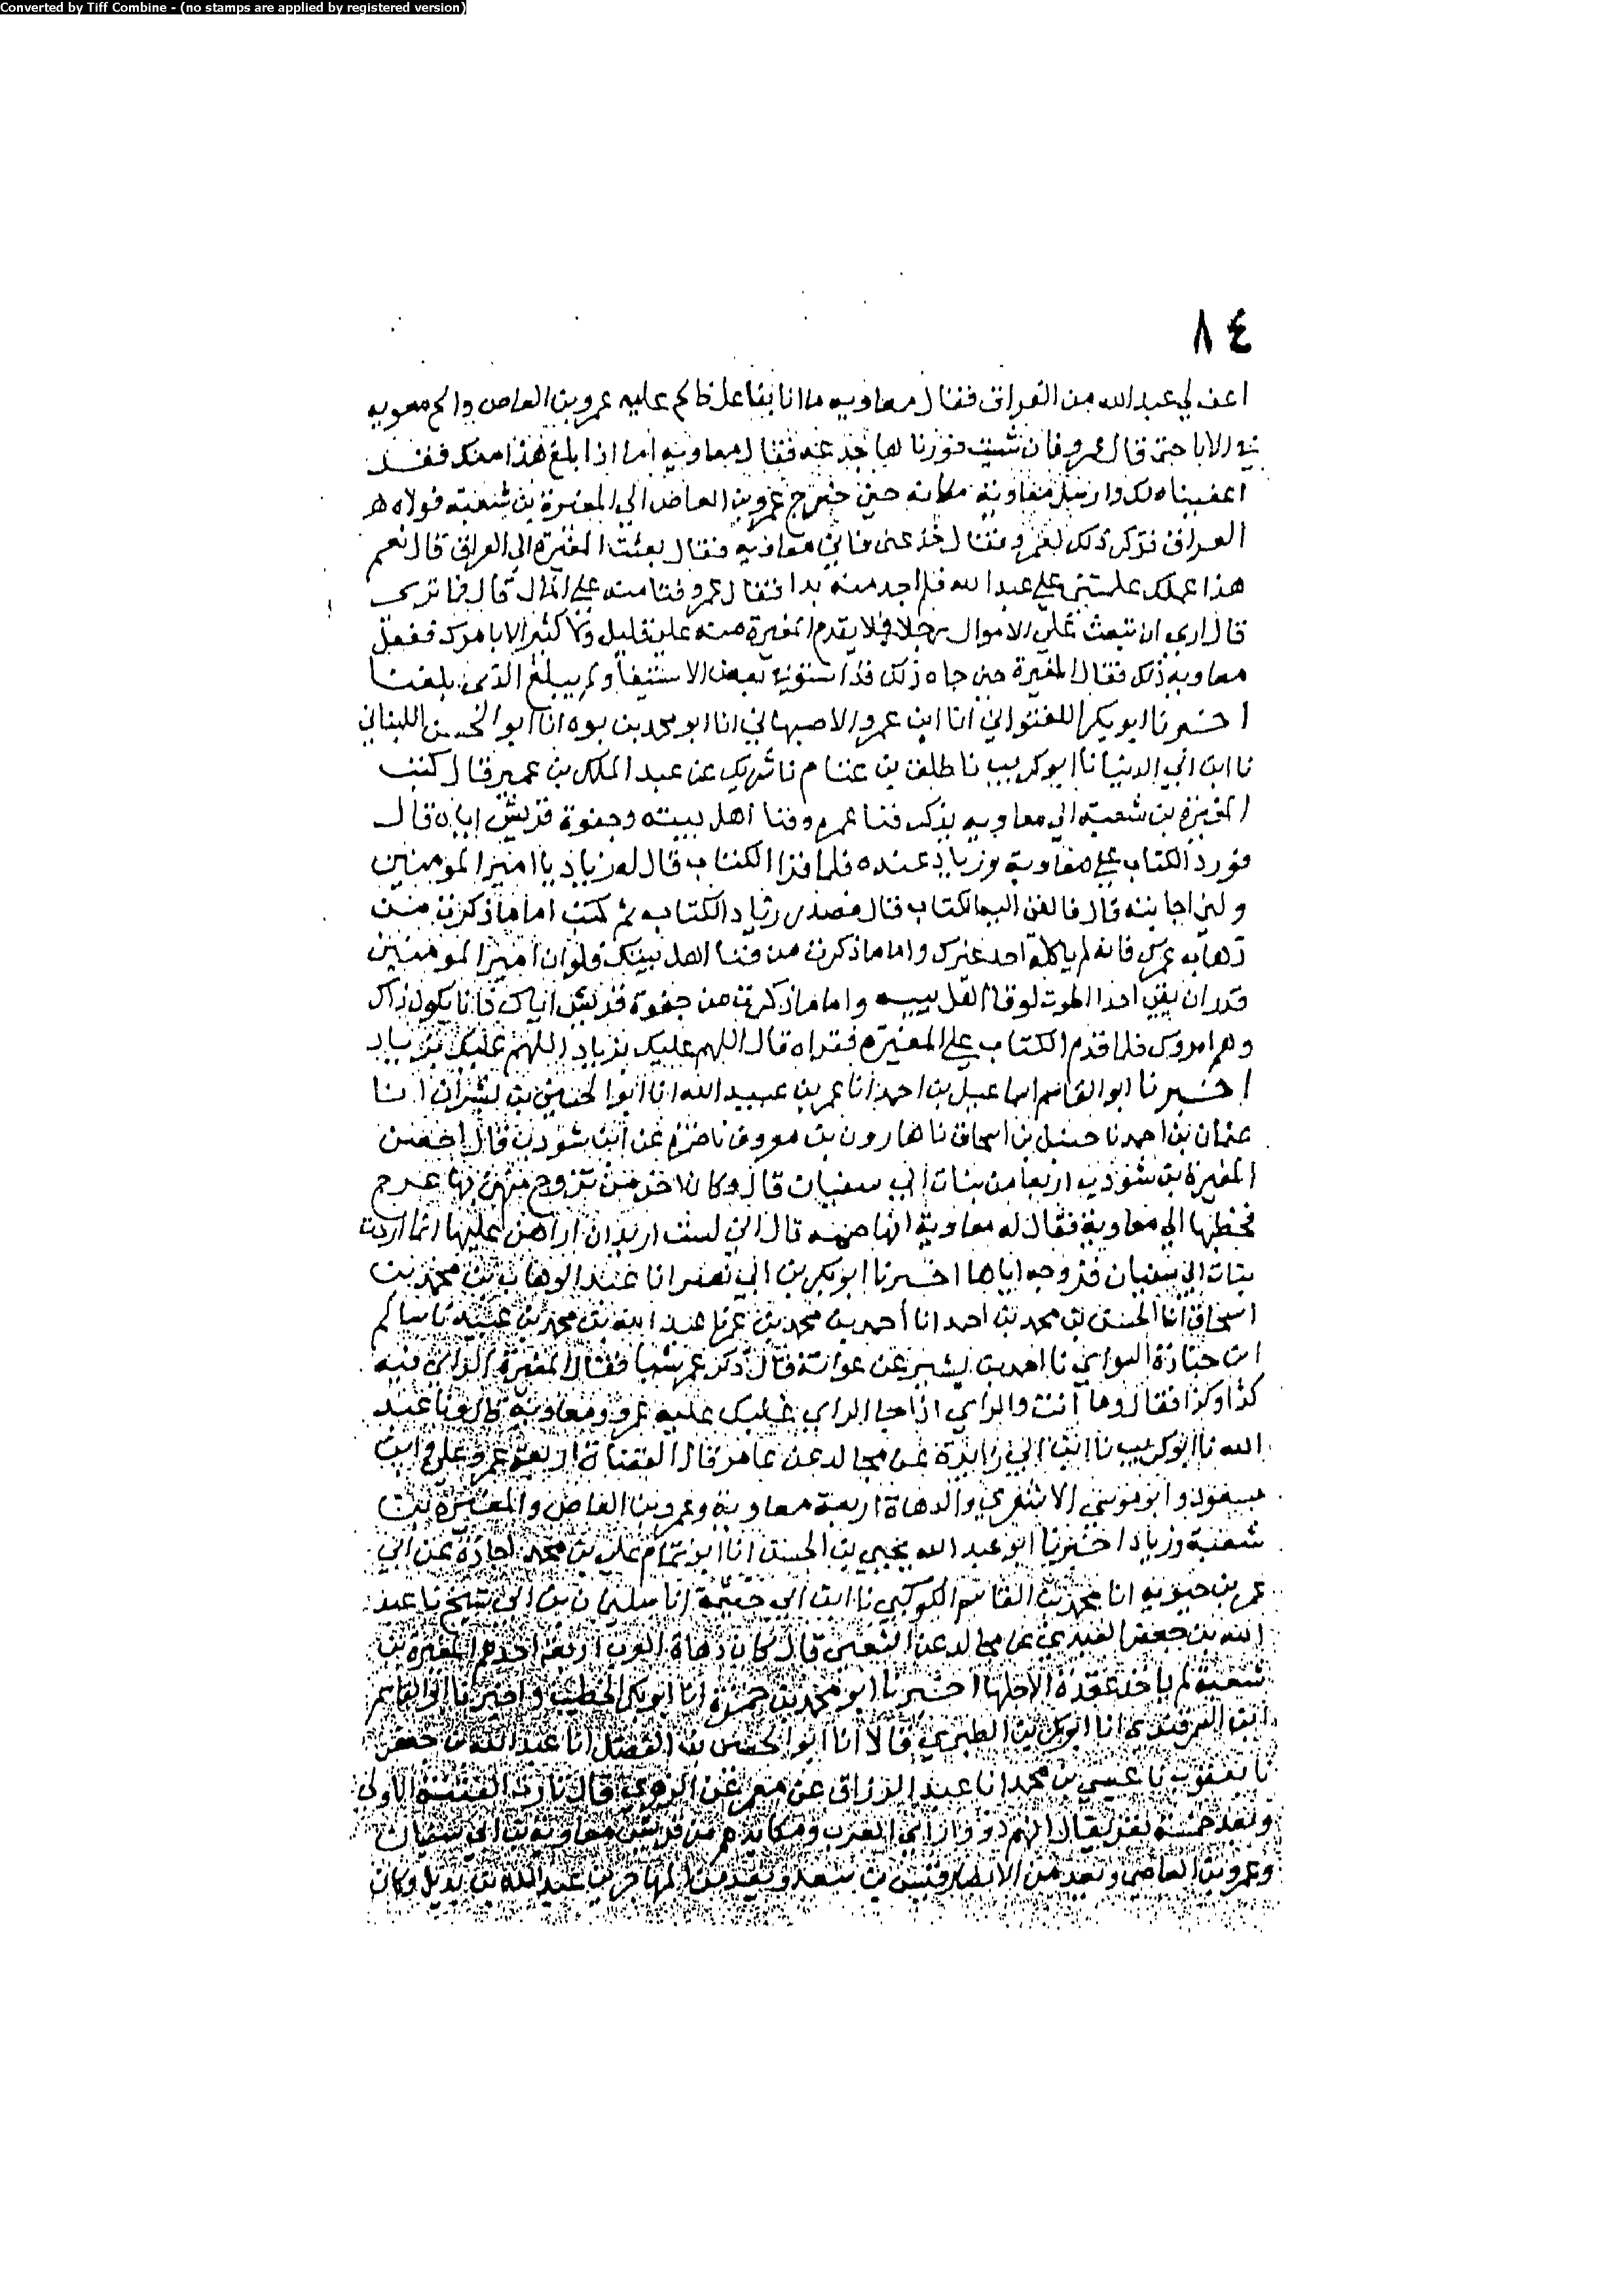 Converted by Tiff Combine - (no stamps are applied by registered version)
٨٤
اعف لي عبد الله من العراق فقال معاويه ما انا بفاعل فالح عليه عمرو بن العاص والح معويه
الا ابا حتى قال عمرو فان شيت فقال معاويه اما اذا بلغ هذا منك فقد
اعفيناه لك وارسل معاوية مكانه حين خرج عمرو بن العاص الي المغيرة بن شعبة فولاه
العراق فذكر ذلك لعمرو فقال معاويه فقال بعثت المغيرة الي العراق قال نعم
هذا عملك علي عبد الله فلم اجد منه بدا فقال عمرو علي المال قال فما تري
قال اري ان تبعث علي الاموال رجلا فلا يقدم المغيرة منه علي قليل ولا كثير الا بامرك ففعل
معاويه ذلك فقال المغيرة حين جاه ذلك بعض الاستيفا ولم يبلغ الذي بلغنا
اخبرنا ابو بكر اللفتواني انا ابو عمرو الاصبهاني انا ابو محمد بن يوه انا ابو الحسن اللبناني
نا ابن ابي الدنيا نا ابو كريب نا طلق بن غنام نا شريك عن عبد الملك بن عمير قال كتب
المغيرة بن شعبة الي معاويه يذكر فنا عمره وفنا اهل بيته وجفوة قريش اياه قال
فورد الكتاب علي معاوية وزياد عنده فلما قرا الكتاب قال له زياد يا امير المومنين
ولني اجابته قال فالقي اليه الكتاب قال زياد الكتاب ثم كتب اما ما ذكرت من
ذهاب عمرك فانه لم ياكله احد غيرك واما ما ذكرت من فنا اهل بيتك فلو ان امير المومنين
قدر ان يقي احدا الموت لوقا اهل بيته واما ما ذكرت من جفوة قريش اياك فانا يكون ذاك
وهم امروك فلما قدم الكتاب علي المغيرة فقراه قال اللهم عليك بزياد اللهم عليك بزياد
اخبرنا ابو القاسم اسماعيل بن احمد انا عمر بن عبيد الله انا ابو الحسين بن بشران انا
عثمان بن احمد نا حنبل بن اسحاق نا هارون بن معروف نا ضمرة عن ابن شوذب قال احصن
المغيرة بن شوذب اربعا من بنات ابي سفيان قال وكان اخر من تزوج منهن بها عرج
فخطبها الي معاوية فقال له معاوية انها قال اني لست اريد ان اراهن عليها انما اردت
بنات ابي سفيان فزوجه اياها اخبرنا ابو بكر بن ابي نصر انا عبد الوهاب بن محمد بن
اسحاق انا الحسن بن محمد بن احمد انا احمد بن محمد بن عمر نا عبد الله بن محمد بن عبيد نا سالم
ابن جنادة السواي نا احمد بن بشير عن عوانة قال ذكر عمر شيا فقال المغيرة الراي فيه
كذا وكذا فقال وما انت والراي اذا جا الراي غلبك عليه عمرو ومعاوية قال ونا عبد
الله نا ابو كريب نا ابن ابي زايدة عن مجالد عن عامر قال القضاة اربعة عمر وعلي وابن
مسعود وابو موسي الاشعري والدهاة اربعة معاوية وعمرو بن العاص والمغيرة بن
شعبة وزياد اخبرنا ابو عبد الله يحيي بن الحسن انا ابو تمام علي بن محمد اجازة عن ابي
عمر بن حيويه انا محمد بن القاسم الكوكبي نا ابن ابي خيثمة انا سليمان بن ابي شيخ نا عبد
الله بن جعفر عن مجالد عن الشعبي قال كان دهاة العرب اربعة احدهم المغيرة بن
شعبة لم ياخذ عقدة الا حلها اخبرنا ابو محمد بن حمزة انا ابو بكر الخطيب واخبرنا ابو القاسم
ابن السمرقندي انا ابو بكر بن الطبري قالا انا ابو الحسين بن الفضل انا عبد الله بن جعفر
نا يعقوب نا عيسي بن محمد انا عبد الرزاق عن معمر عن الزهري قال ثارت الفتنة الاولي
وبعد خمسة نفر يقال لهم ذو وا راي العرب ومكايدهم من قريش معاوية بن ابي سفيان
وعمرو بن العاص ويعد من الانصار قيس بن سعد ويعد من المهاجرين عبد الله بن بديل وكان